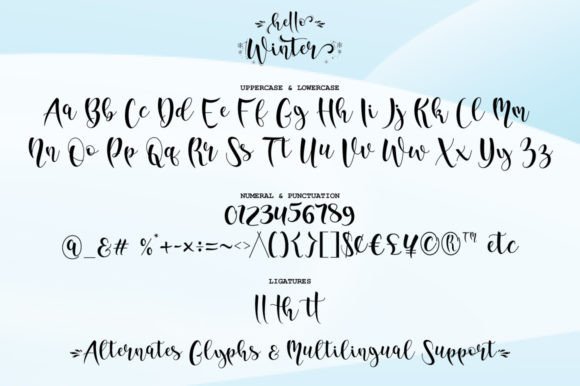 hello
Winter
UPPERCASE & LOWERCASE
Aa Bb Cc Dd Ee Ff Gg Hh Ii Jj Kk Ll Mm
Nn Oo Pp Qq Rr Ss Tt Uu Vv Ww Xx Yy Zz
NUMERAL & PUNCTUATION
0123456789
@_&# %*+-×÷=~<>/\(){}[]$¢€£¥©®™ etc
LIGATURES
ll th tt
Alternates Glyphs & Multilingual Support